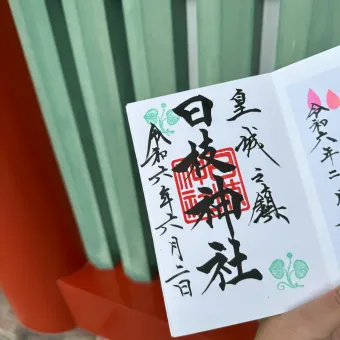 令和
皇城之鎮
日枝神社
令和六年六月二日